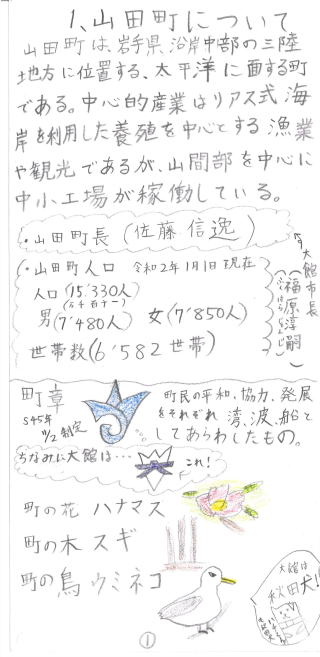 1、山田町について
山田町は、岩手県沿岸中部の三陸
地方に位置する、太平洋に面する町
である。中心的産業はリアス式海
岸を利用した養殖を中心とする漁業
や観光であるが、山間部を中心に
中小工場が稼働している。
・山田町長（佐藤信逸）
大館市長
（福原淳嗣）
ふくはらじゅんじ
・山田町人口 令和2年1月1日現在
人口（15'330人）
男（7'480人） 女（7'850人）
世帯数（6'582世帯）
町章
S45年
11/2制定
町民の平和、協力、発展
をそれぞれ湾、波、船と
してあらわしたもの。
ちなみに大館は…
これ！
町の花 ハナマス
町の木 スギ
町の鳥 ウミネコ
大館は
秋田犬！
①